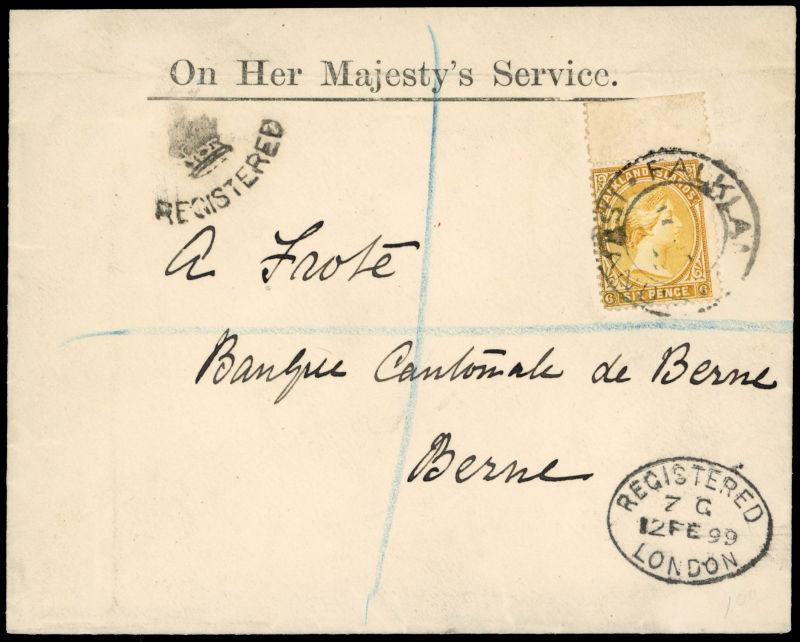 On Her Majesty's Service.
REGISTERED
FALKLAND ISLANDS
6 SIX PENCE 6
FALKLAN
A Frote
Banque Cantonale de Berne
Berne
REGISTERED
7 G
12 FE 99
LONDON